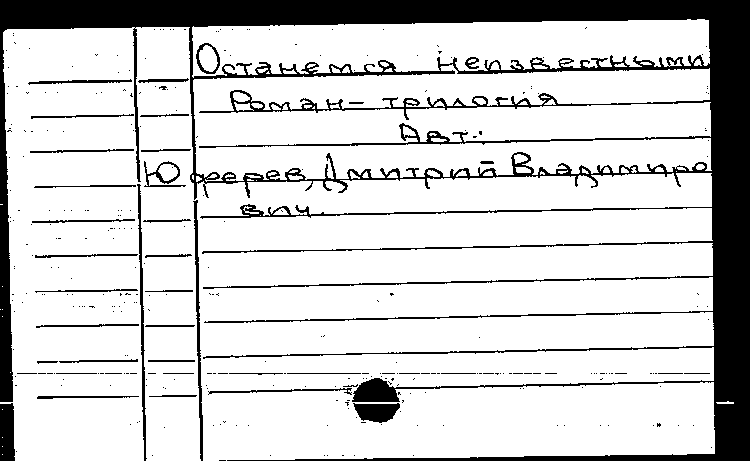 Останемся неизвестными
Роман-трилогия
Авт.:
Юферев, Дмитрий Владимиро
вич.